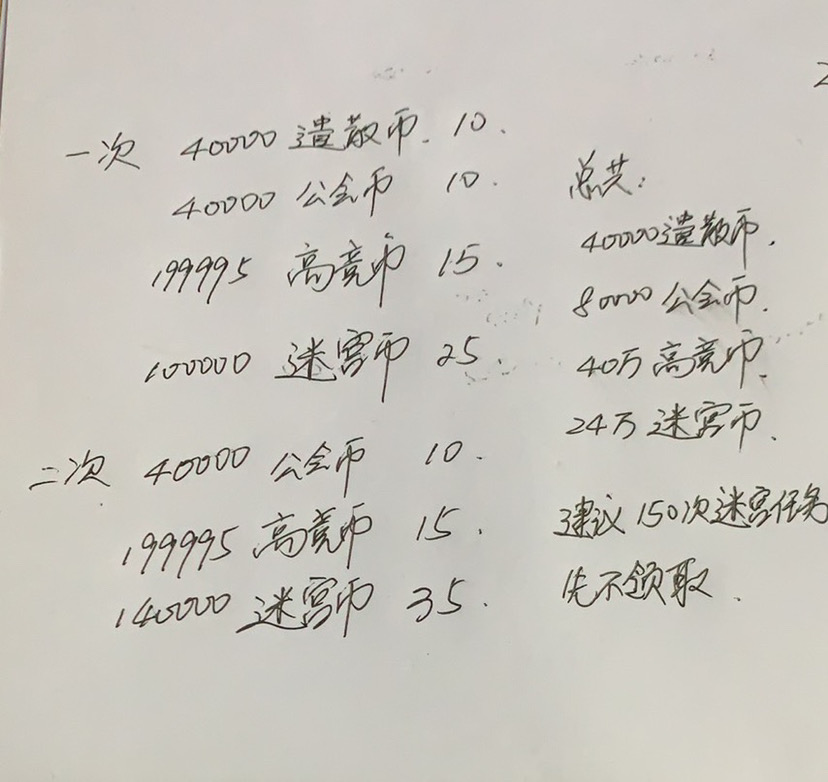 一次 40000 遣散币. 10.
40000 公会币 10.
199995 高竞币 15.
100000 迷宫币 25.
二次 40000 公会币 10.
199995 高竞币 15.
140000 迷宫币 35.
总共:
40000遣散币.
80000公会币.
40万高竞币.
24万迷宫币.
建议150次迷宫任务
先不领取.